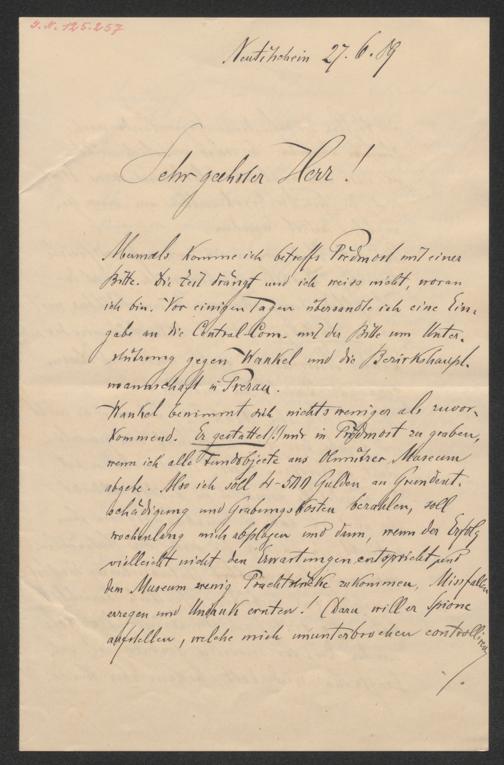 J.N. 125.257
Neutitschein 27.6.89
Sehr geehrter Herr!
Abermals komme ich betreffs Předmost mit einer
Bitte. Die Zeit drängt und ich weiss nicht, woran
ich bin. Vor einigen Tagen übersandte ich eine Ein-
gabe an die Central-Com. mit der Bitte um Unter-
stützung gegen Wankel und die Bezirkshaupt-
mannschaft in Prerau.
Wankel benimmt sich nichts weniger als zuvor-
kommend. Er gestattet (!) mir in Předmost zu graben,
wenn ich alle Fundobjecte ans Olmützer Museum
abgebe. Also ich soll 4-500 Gulden an Grundent-
schädigung und Grabungskosten bezahlen, soll
wochenlang mich abplagen und dann, wenn der Erfolg
vielleicht nicht den Erwartungen entspricht und
dem Museum wenig Prachtstücke zukommen, Missfallen
erregen und Undank ernten! Dazu will er Spione
aufstellen, welche mich ununterbrochen controlliren
./.